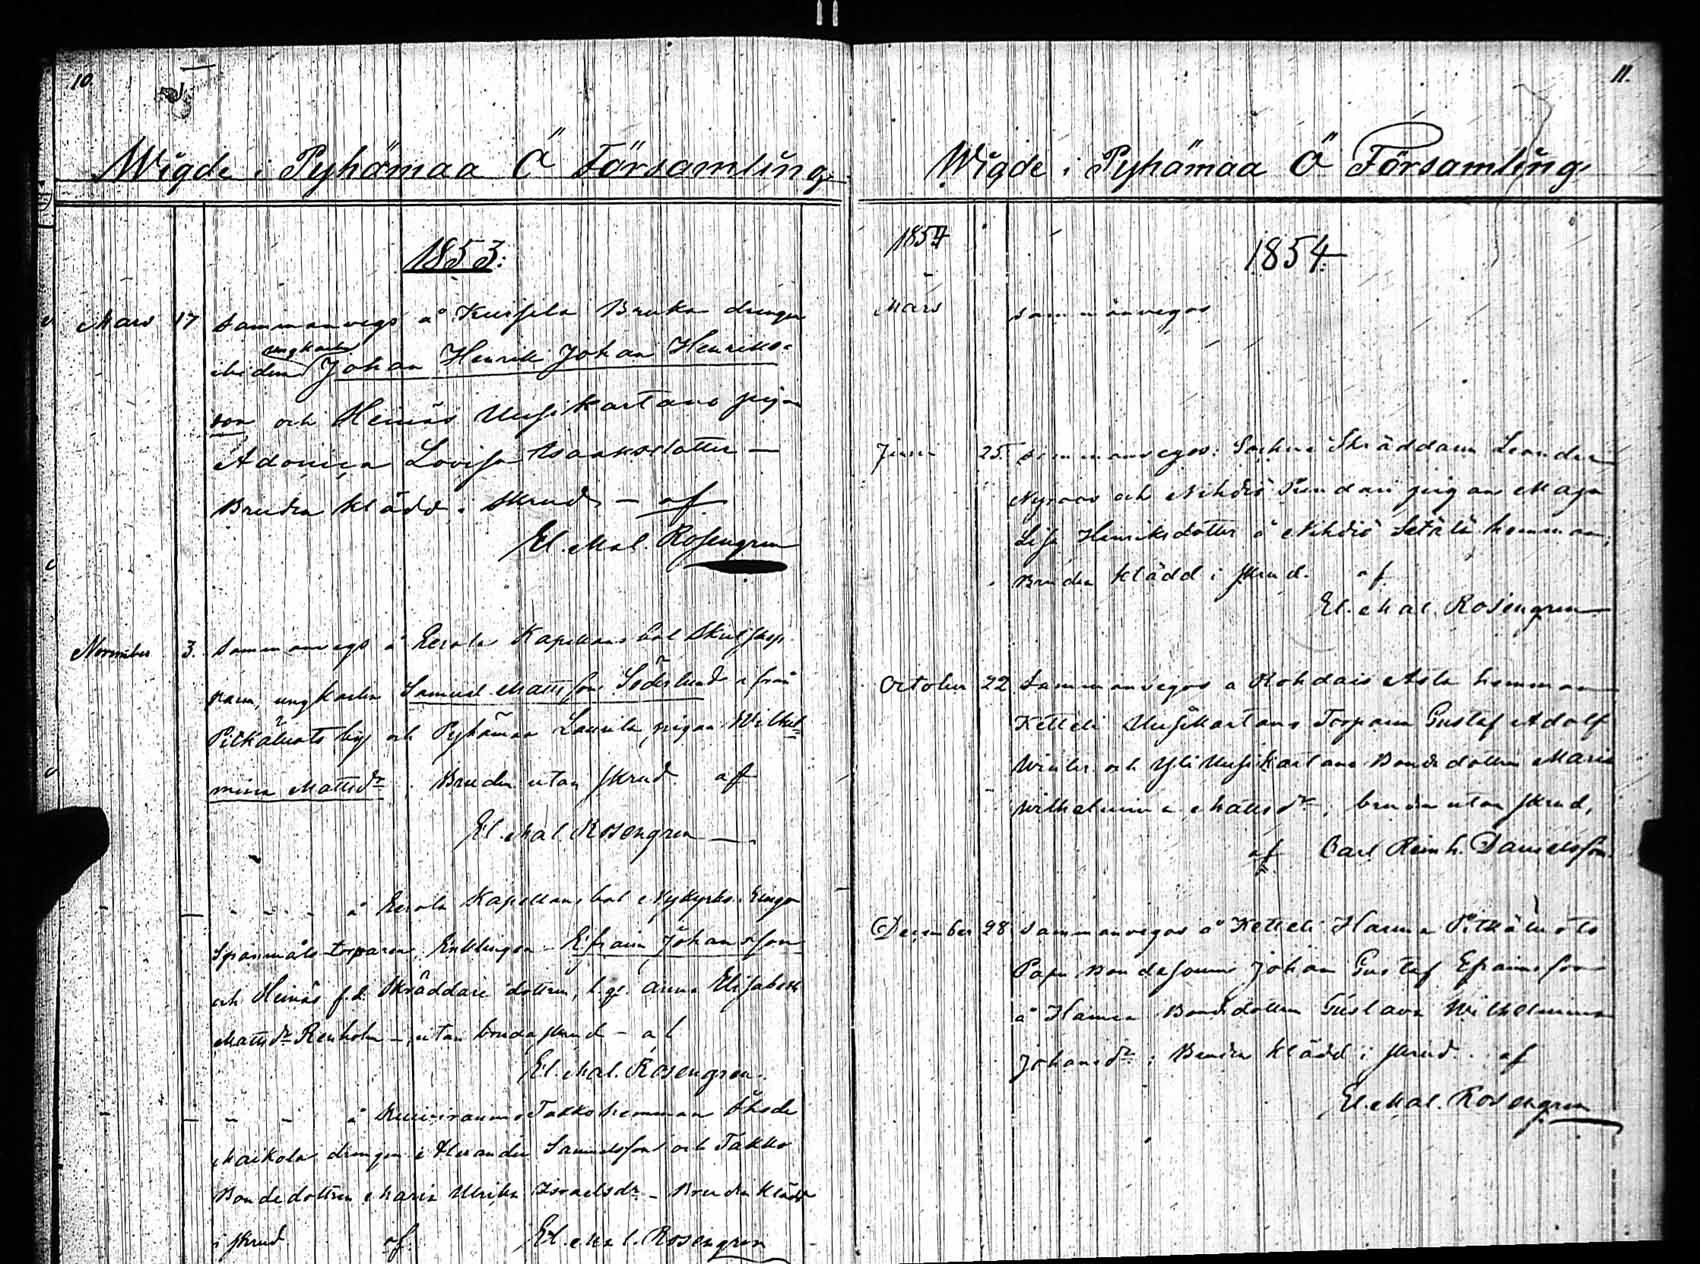 10
Wigde i Pyhämaa Ö Församling
1853.
Mars 17 Sammanvegs å Kursila Bruka drengen
ungkarlen
Johan Henrik Johan Henriks-
son och Heinäs Uusikartano pigan
Adoniga Lovisa Isaaksdotter —
Bruden klädd i skrud — af
El. Mal. Rosengren
November 3. Sammanvegs å Eerola Kapellans bol
ungkarlen Samuel Mattsson Söderlund ifrån
Pitkäluoto by och Pyhämaa Laurila, pigan Wilhel-
mina Mattsdr. Bruden utan skrud af
El. Mal. Rosengren —
— - - - - å Eerola Kapellans bol Nykyrko
torparen Efraim Johansson
och Heinäs f.d. Skräddare dottren, Anna Elisabeth
Mattsdr Renholm — utan brudaskrud — af
El. Mal. Rosengren.
- - - - å Takko hemman
Maikola drengen Alexander Samuelsson och Takko
Bondedottren Maria Ulrika Israelsdr — Bruden klädd
i skrud af El. Mal. Rosengren
11.
Wigde i Pyhämaa Ö Församling
1854
1854
Mars Sammanvegos
Juni 25. Sammanvegos: Sockne Skräddaren Leander
och Nihdiö pigan Maja
Lisa Henriksdotter å Nihdiö Setälä hemman,
Bruden klädd i skrud. af
El. Mal. Rosengren
October 22 Sammanvegos å Rohdais Asla hemman
Ketteli Uusikartano Torparen Gustaf Adolf
och Yli Uusikartano Bonde dottren Maria
Wilhelmina Mattsdr, bruden utan skrud,
af Carl Reinh. Danielsson.
December 28 Sammanvegos å Ketteli Hannu Pitkäluoto
Papu Bondesonen Johan Gustaf Efraimsson
å Hannu Bondedottren Gustava Wilhelmina
Johansdr: Bruden klädd i skrud. af
El. Mal. Rosengren